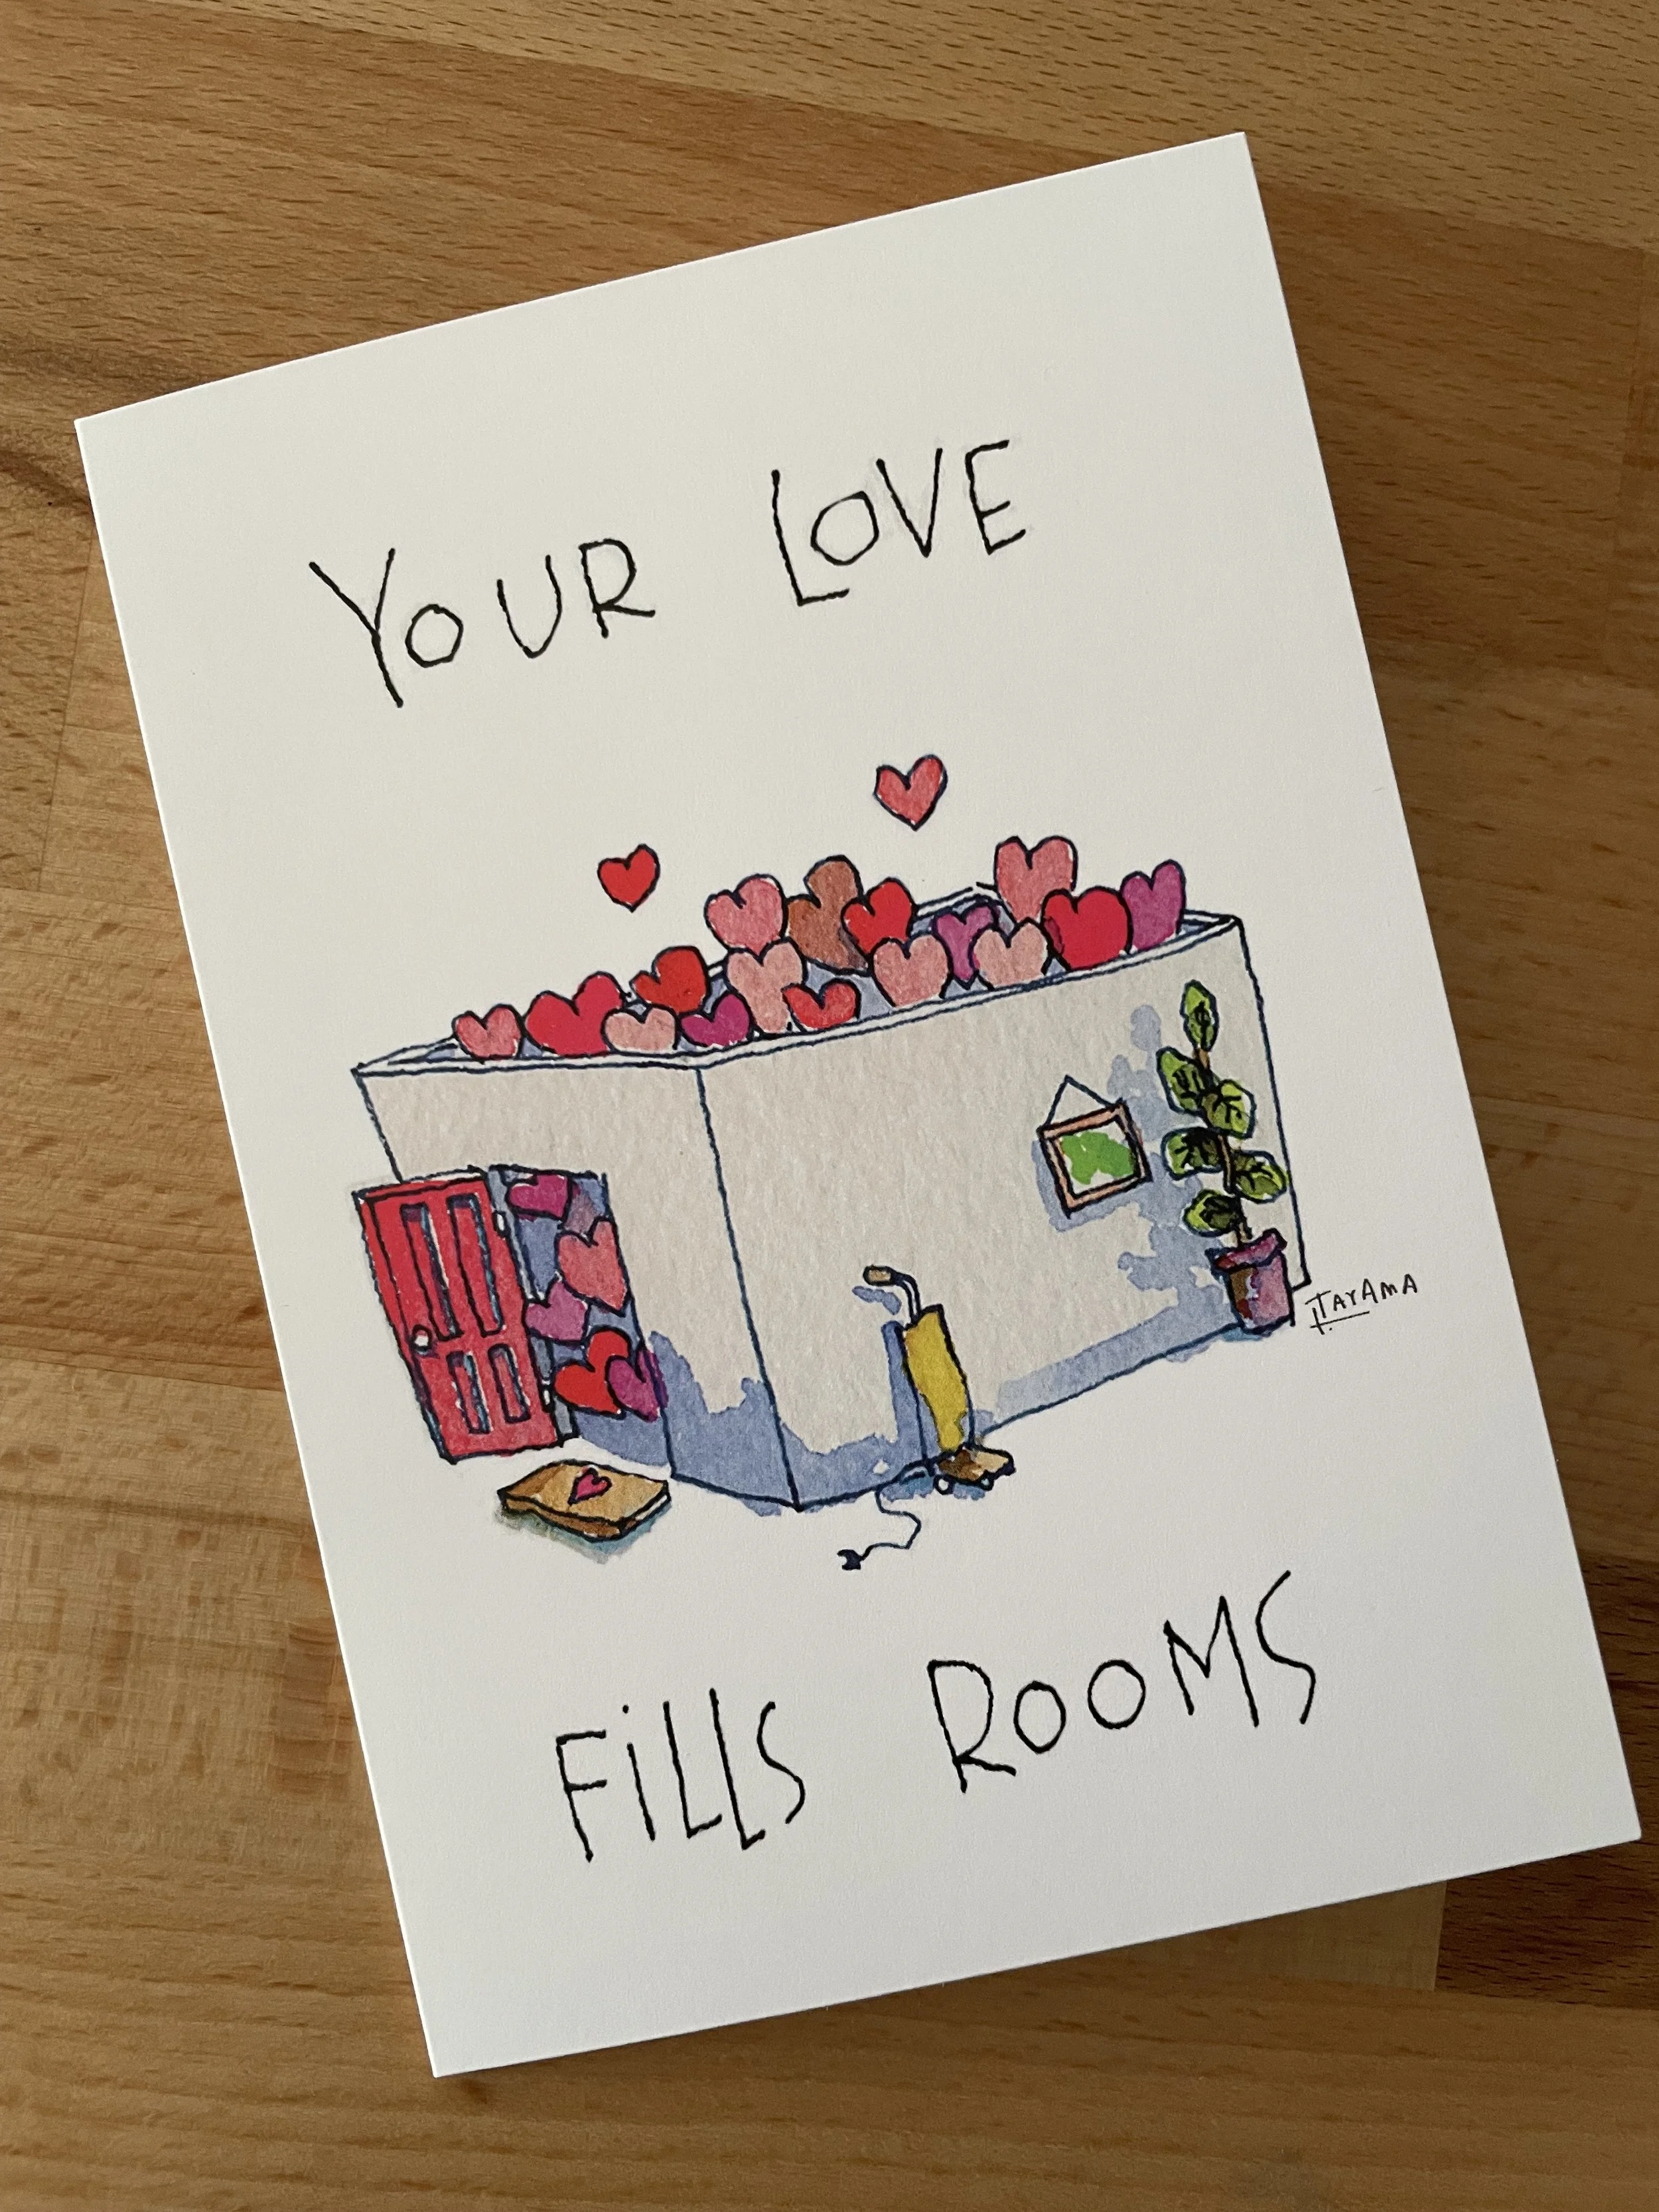 YOUR LOVE
ITAYAMA
FiLLS ROOMS